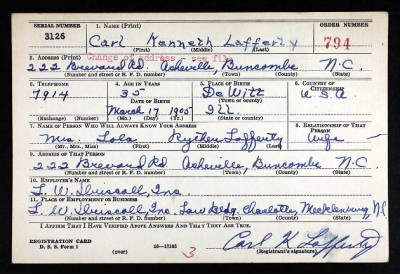 SERIAL NUMBER 1. NAME (Print) ORDER NUMBER
3126 Carl Kenneth Lafferty 794
(First) (Middle) (Last)
2. ADDRESS (Print) Change of address - see file
222 Brevard Rd Asheville, Buncombe N.C.
(Number and street or R. F. D. number) (Town) (County) (State)
3. TELEPHONE 4. AGE IN YEARS 5. PLACE OF BIRTH 6. COUNTRY OF CITIZENSHIP
7914 35 De Witt U.S.A
DATE OF BIRTH (Town or county)
March 17 1905 Ill.
(Mo.) (Day) (Yr.) (State or country)
7. NAME OF PERSON WHO WILL ALWAYS KNOW YOUR ADDRESS 8. RELATIONSHIP OF THAT PERSON
Mrs. Lola Lafferty Wife
(Mr., Mrs., Miss) (First) (Middle) (Last)
9. ADDRESS OF THAT PERSON
222 Brevard Rd Asheville, Buncombe N.C.
(Number and street or R. F. D. number) (Town) (County) (State)
10. EMPLOYER'S NAME
L. W. Driscoll, Inc.
11. PLACE OF EMPLOYMENT OR BUSINESS
L. W. Driscoll, Inc. Law Bldg. Charlotte, Mecklenburg, N.C.
(Number and street or R. F. D. number) (Town) (County) (State)
I AFFIRM THAT I HAVE VERIFIED ABOVE ANSWERS AND THAT THEY ARE TRUE.
REGISTRATION CARD
D. S. S. Form 1 (over) 16-17105 3 Carl K Lafferty
(Registrant's signature)